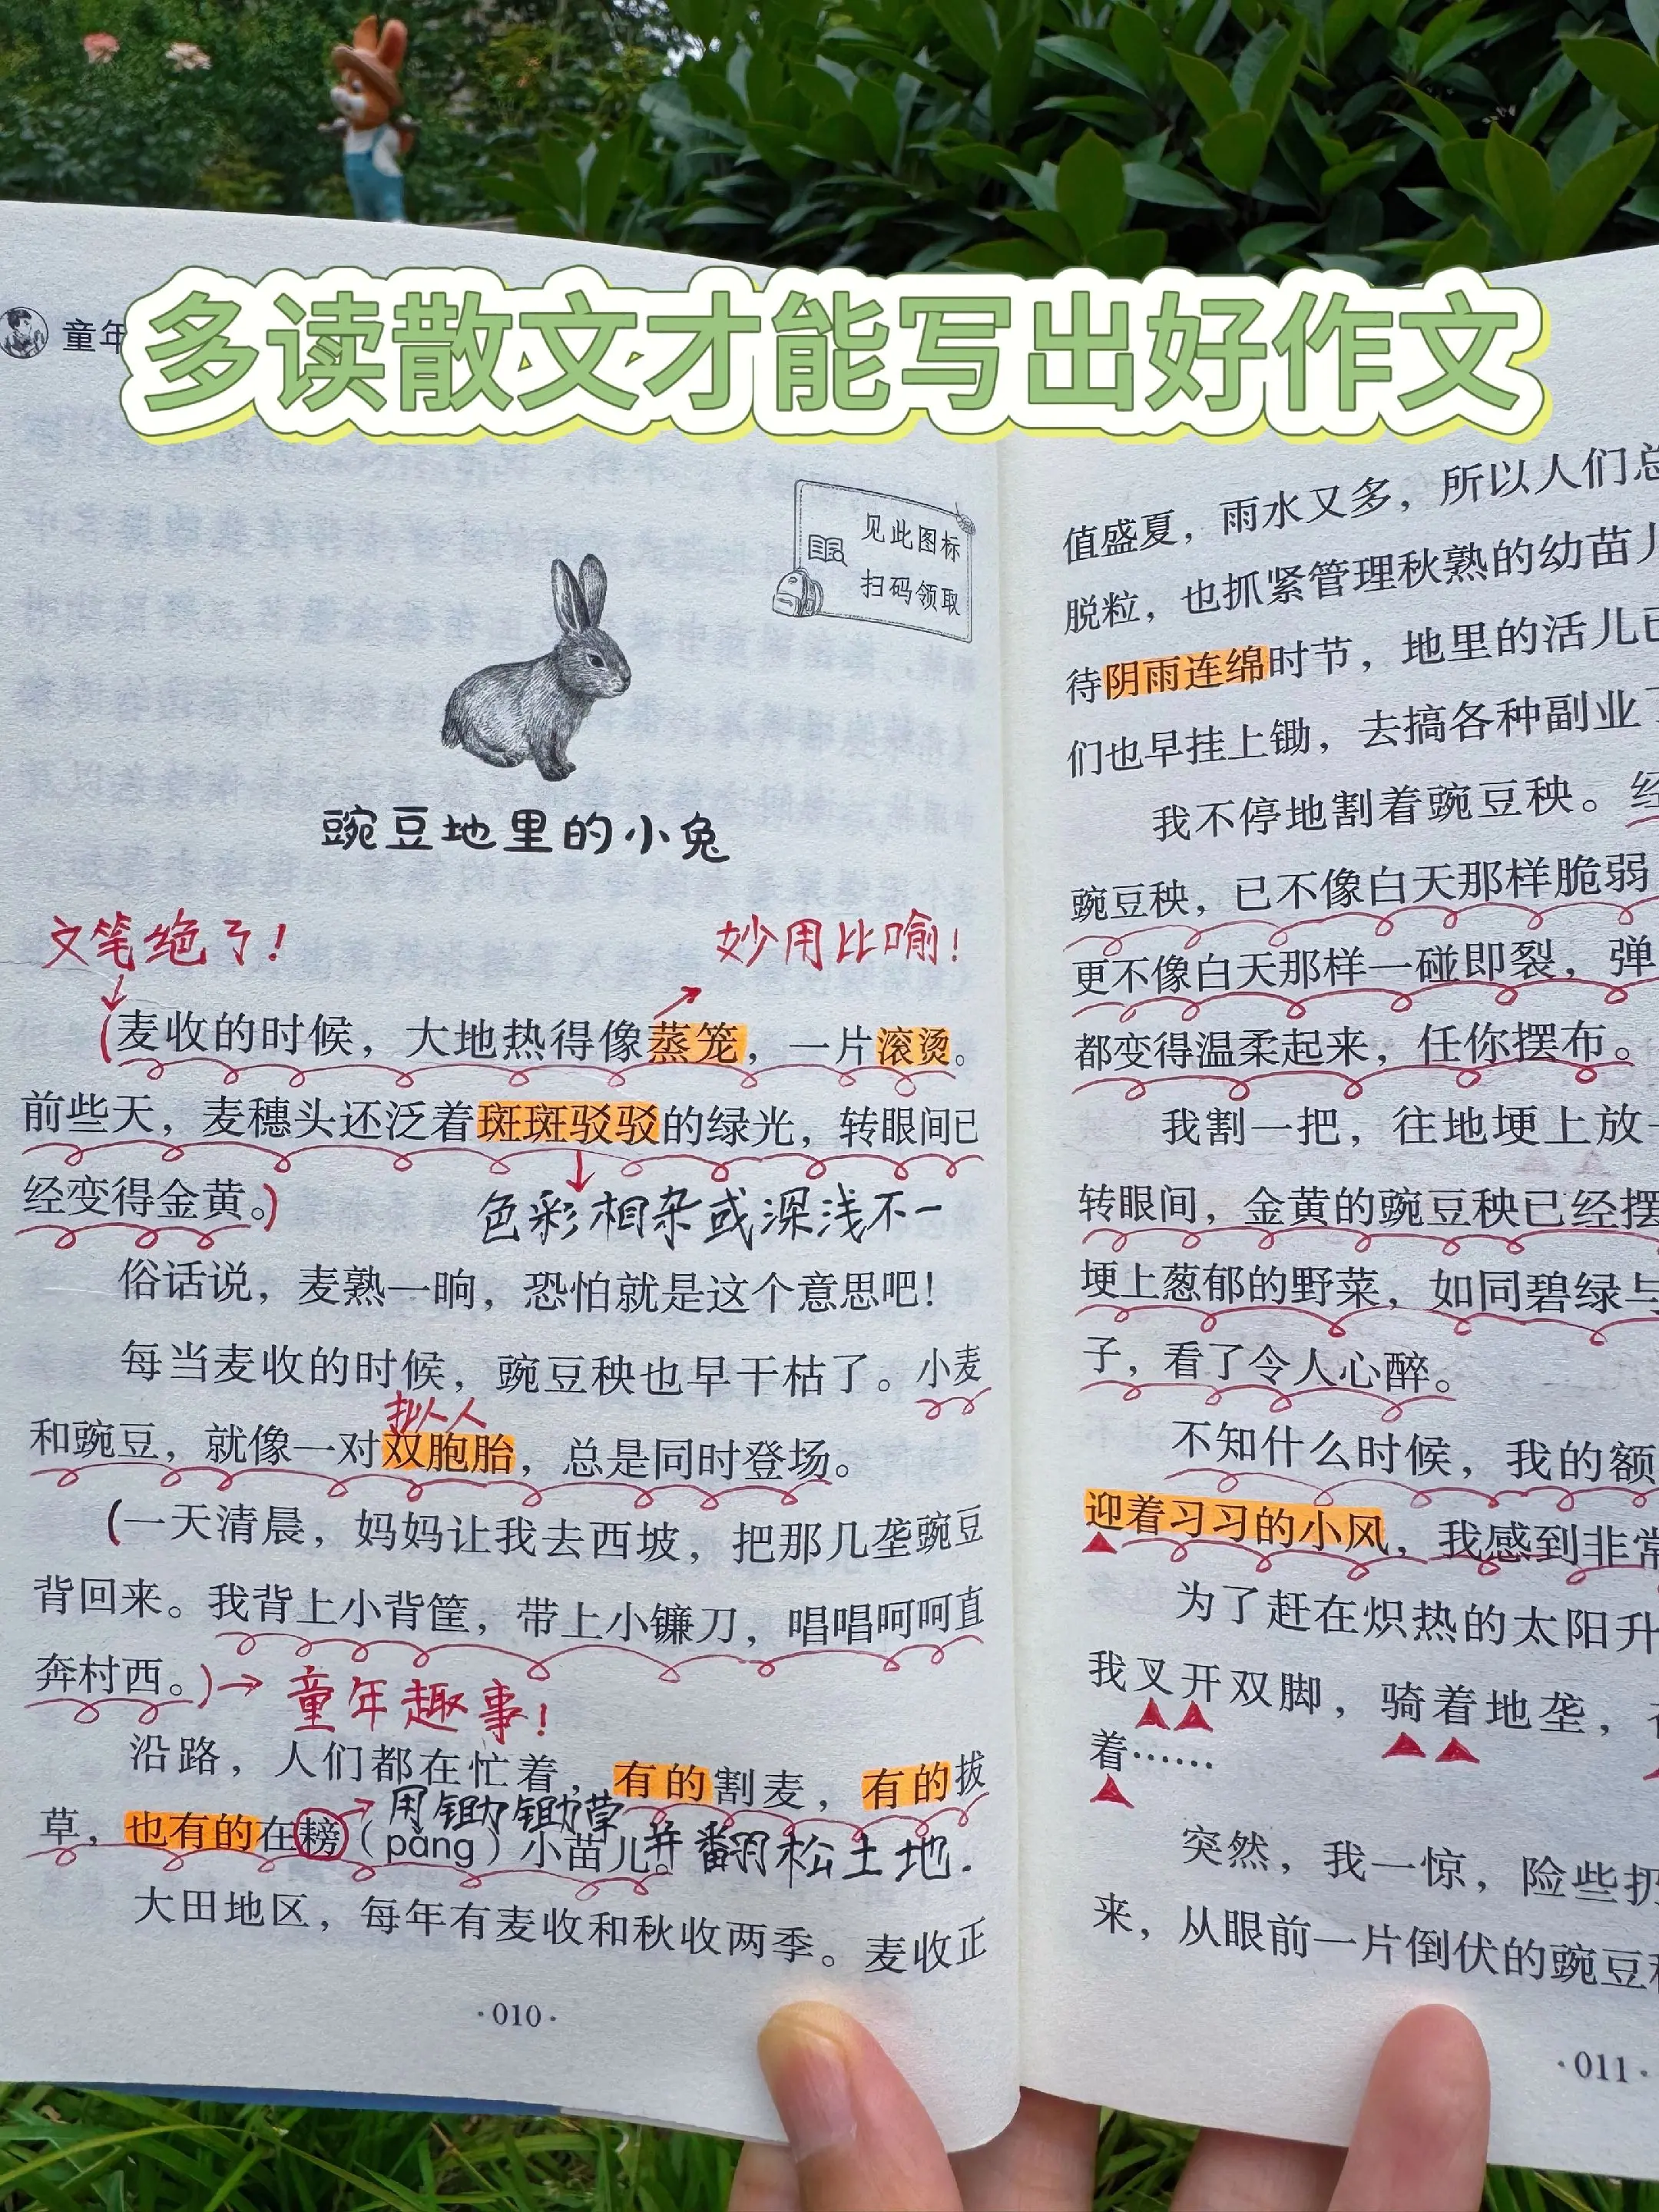 多读散文才能写出好作文
童年
见此图标
扫码领取
豌豆地里的小兔
文笔绝了！
妙用比喻！
（麦收的时候，大地热得像蒸笼，一片滚烫。
前些天，麦穗头还泛着斑斑驳驳的绿光，转眼间已
经变得金黄。）
色彩相杂或深浅不一
俗话说，麦熟一晌，恐怕就是这个意思吧！
每当麦收的时候，豌豆秧也早干枯了。小麦
拟人
和豌豆，就像一对双胞胎，总是同时登场。
（一天清晨，妈妈让我去西坡，把那几垄豌豆
背回来。我背上小背筐，带上小镰刀，唱唱呵呵直
奔村西。）
童年趣事！
沿路，人们都在忙着，有的割麦，有的拔
用锄锄草
草，也有的在耪（pǎng）小苗儿。
并翻松土地.
大田地区，每年有麦收和秋收两季。麦收正
·010·
值盛夏，雨水又多，所以人们总
脱粒，也抓紧管理秋熟的幼苗儿
待阴雨连绵时节，地里的活儿已
们也早挂上锄，去搞各种副业了
我不停地割着豌豆秧。经
豌豆秧，已不像白天那样脆弱
更不像白天那样一碰即裂，弹
都变得温柔起来，任你摆布。
我割一把，往地埂上放一
转眼间，金黄的豌豆秧已经摆
埂上葱郁的野菜，如同碧绿与
子，看了令人心醉。
不知什么时候，我的额
迎着习习的小风，我感到非常
为了赶在炽热的太阳升
我叉开双脚，骑着地垄，
着……
突然，我一惊，险些扔
来，从眼前一片倒伏的豌豆
·011·